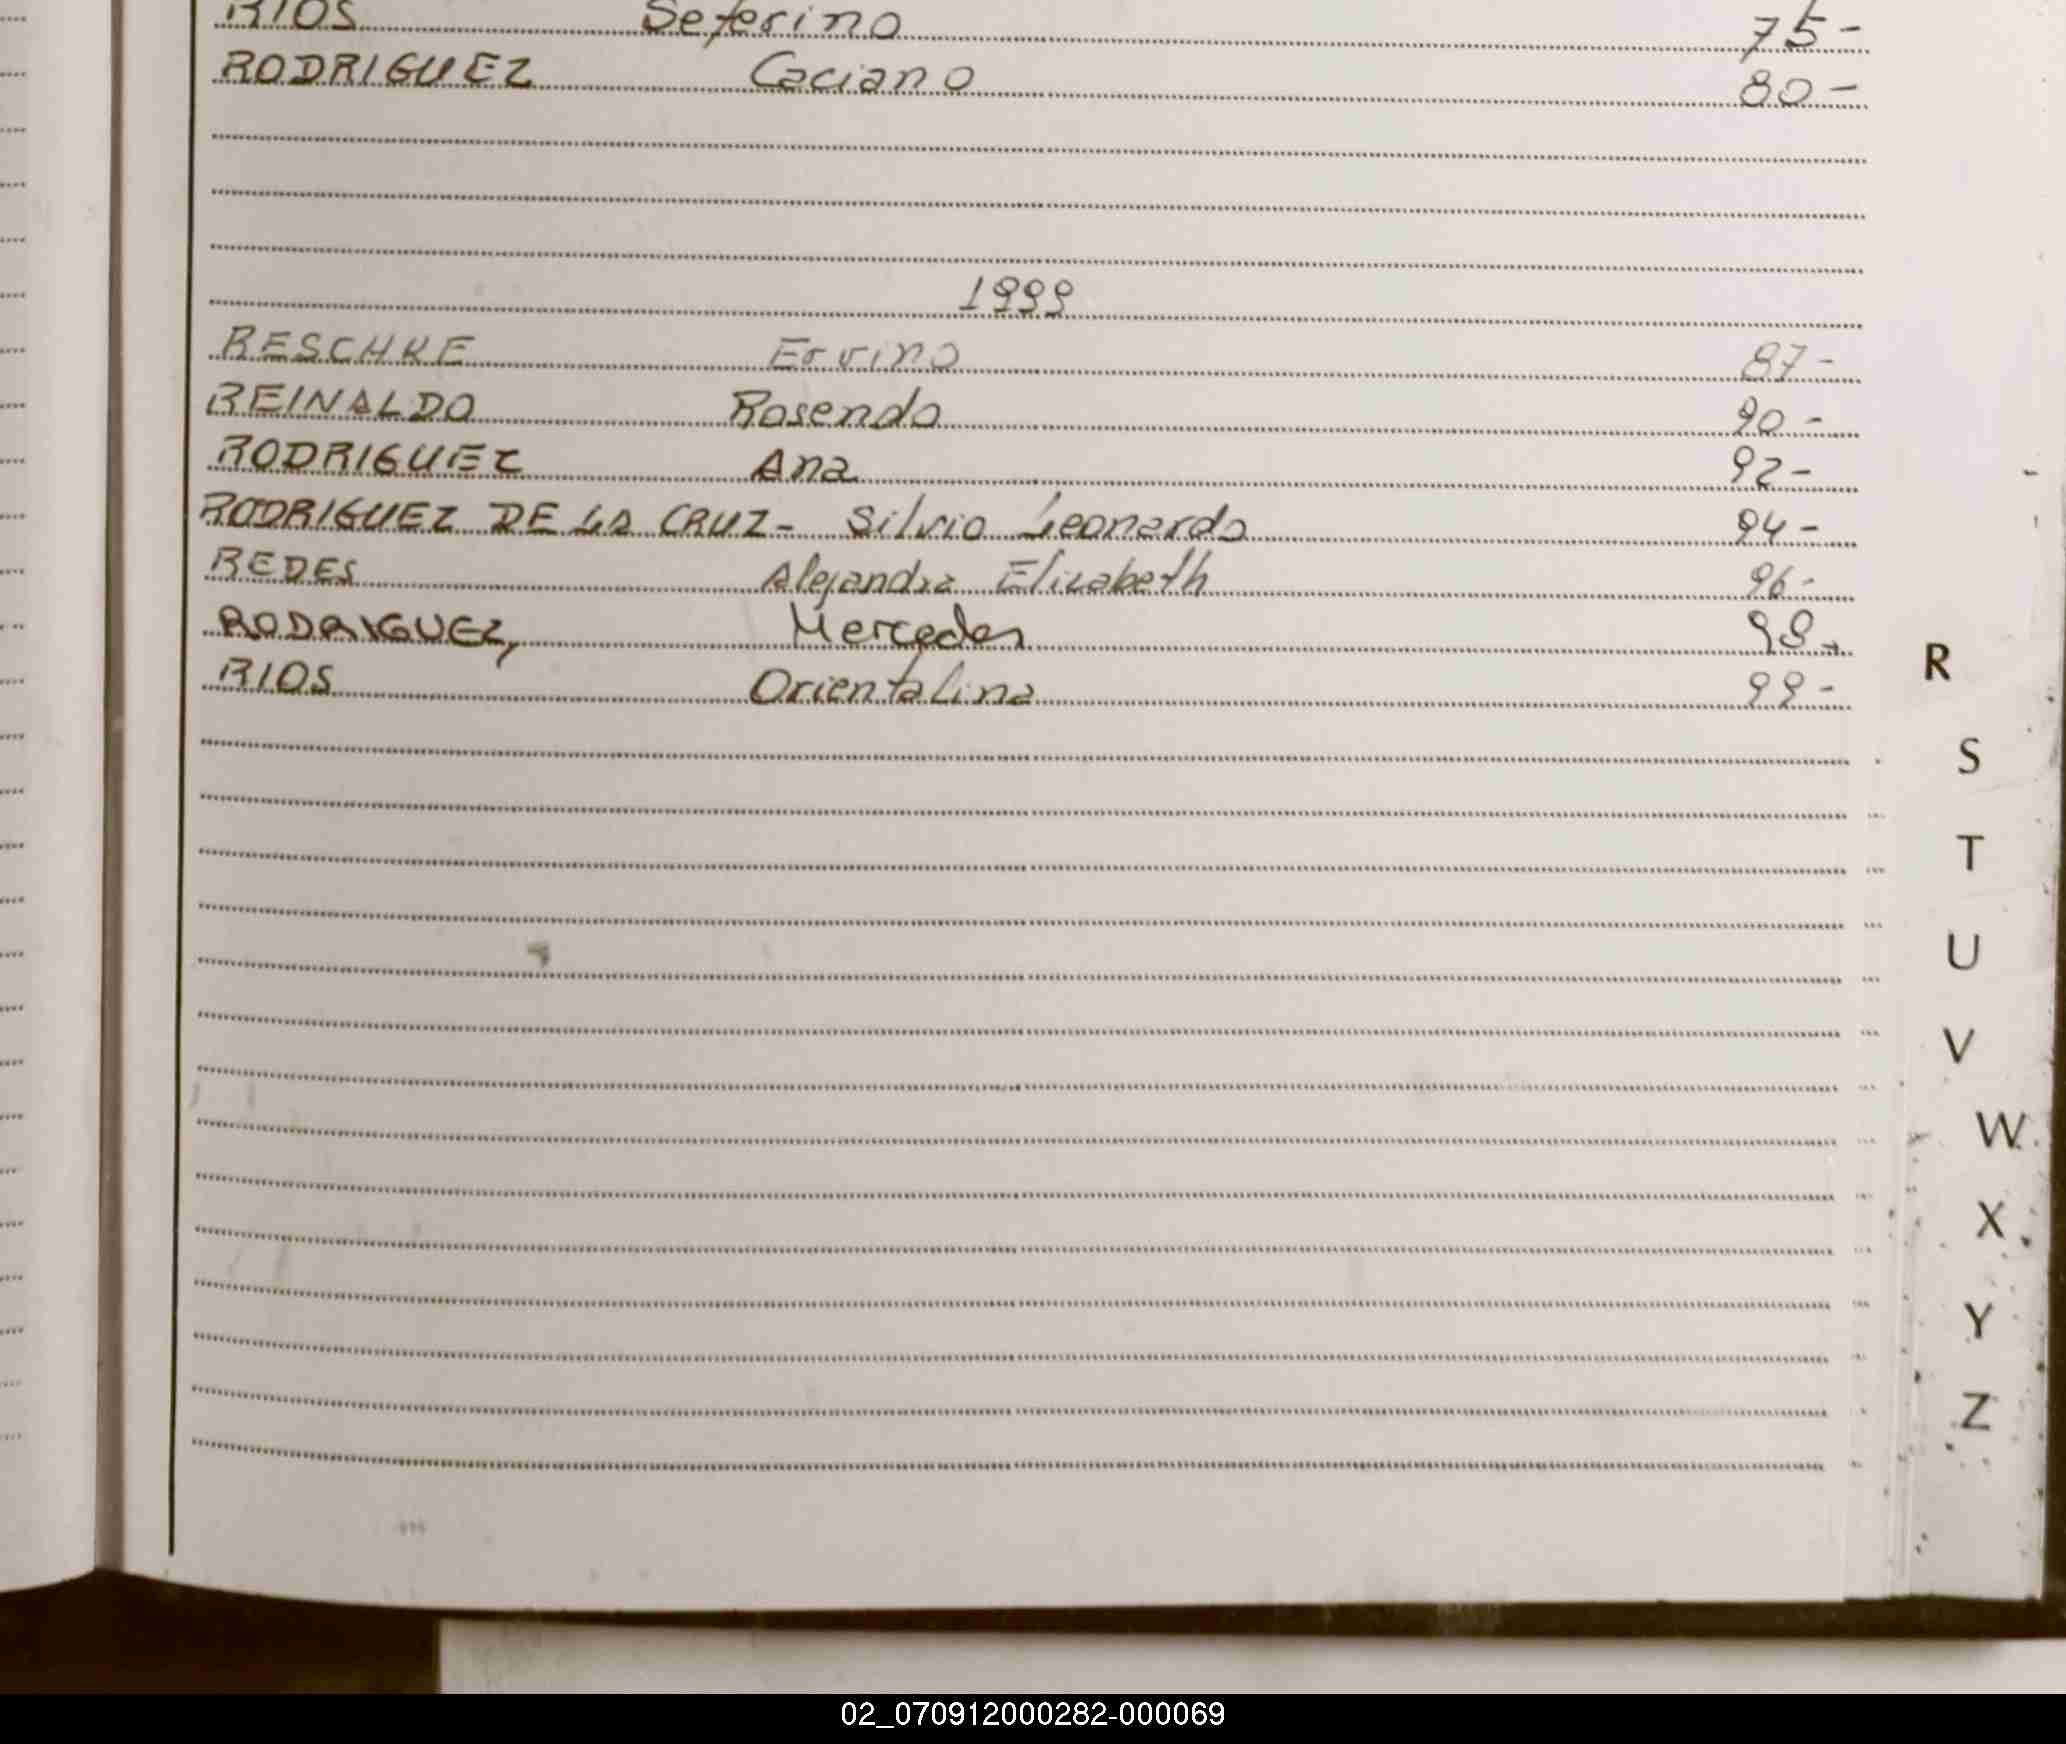 RIOS Seferino 75-
RODRIGUEZ Caciano 80-
1999
RESCHKE Ervino 87-
REINALDO Rosendo 90-
RODRIGUEZ Ana 92-
RODRIGUEZ DE LA CRUZ- Silvio Leonardo 94-
REDES Alejandra Elizabeth 96-
RODRIGUEZ, Mercedes 98-
RIOS Orientalina 99-
R
S
T
U
V
W
X
Y
Z
02_070912000282-000069